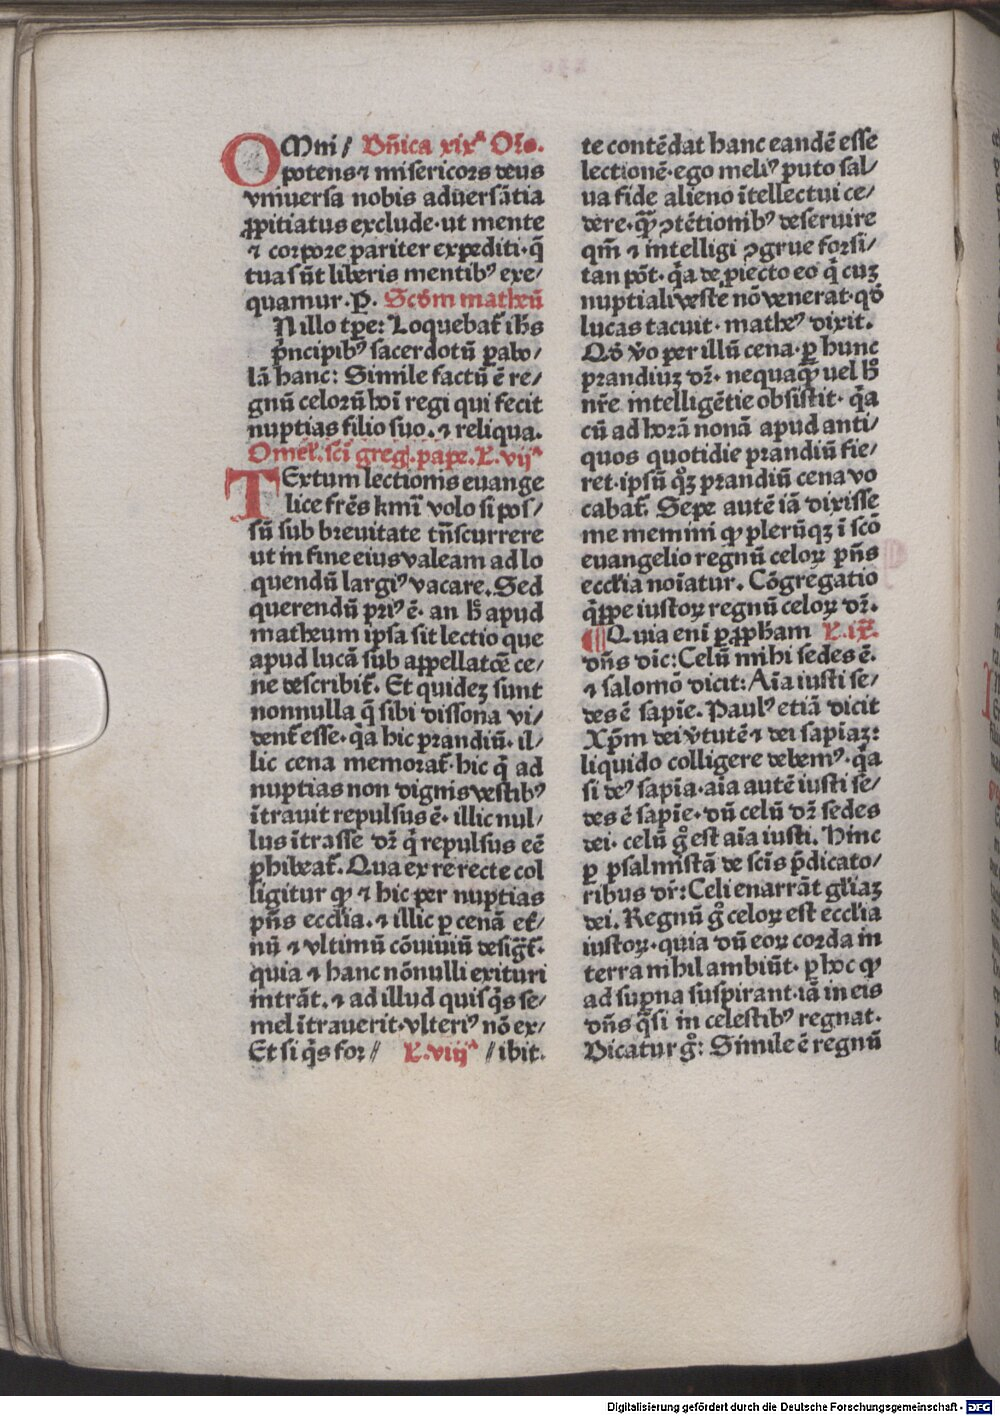 OMni / Dñica xixᵃ Oro.
potens ⁊ misericors deus
vniuersa nobis aduersātia
ꝓpitiatus exclude· ut mente
⁊ corpore pariter expediti· q̄
tua sūt liberis mentibꝰ exe/
quamur. P̱. Scd̄m matheū
N illo tp̄e: Loquebat̄ ih̄s
pⁱncipibꝰ sacerdotū parabo/
lā hanc: Simile factū ē re/
gnū celorū hoī regi qui fecit
nuptias filio suo. ⁊ reliqua.
Omel̄. scī greḡ. pape. L. vijᵃ
TExtum lectionis euange
lice fr̄es kmī volo si pos/
sū sub breuitate tn̄scurrere
ut in fine eius valeam ad lo
quendū largiꝰ vacare. Sed
querendū priꝰ ē. an h̄ apud
matheum ipsa sit lectio que
apud lucā sub appellatōe ce/
ne describit̄. Et quidez sunt
nonnulla q̄ sibi dissona vi/
dent̄ esse· qa hic prandiū· il/
lic cena memorat̄· hic qⁱ ad
nuptias non dignis vestibꝰ
ītrauit repulsus ē· illic nul/
lus ītrasse dr̄ qⁱ repulsus eē
ꝓhibeat̄. Qua ex re recte col
ligitur ꝙ ⁊ hic per nuptias
pn̄s eccl̄ia. ⁊ illic ꝑ cenā et̄/
nū ⁊ vltimū cōuiuiū desigt̄·
quia ⁊ hanc nōnulli exituri
intrāt. ⁊ ad illud quisqⁱs se/
mel ītrauerit· vlteriꝰ nō ex/
Et si qⁱs for// L. viijᵃ // ibit.
te contēdat hanc eandē esse
lectionē· ego meliꝰ puto sal/
ua fide alieno ītellectui ce/
dere· qᷓꝫ ꝯtētionibꝰ deseruire
qm̄ ⁊ intelligi ꝯgrue forsi/
tan pōt· qa de ꝓiecto eo qⁱ cuꝫ
nuptiali veste nō venerat· qd̄
lucas tacuit· matheꝰ dixit.
Qd̄ v̊o per illū cena· ꝑ hunc
prandiuꝫ dr̄· nequaqᷓꝫ uel h̊
nr̄e intelligētie obsistit· qa
cū ad horā nonā apud anti/
quos quotidie prandiū fie/
ret· ipsū qꝫ prandiū cena vo
cabat̄. Sepe autē iā dixisse
me memini ꝙ plerūqꝫ ī scō
euangelio regnū celoꝝ pn̄s
eccl̄ia noīatur. Cōgregatio
qⁱppe iustoꝝ regnū celoꝝ dr̄.
¶Quia enī ꝑ ꝓph̄am L. ix̄.
dn̄s dic̄: Celū mihi sedes ē.
⁊ salomō dicit: Aīa iusti se/
des ē sapīe. Paulꝰ etiā dicit
Xp̄m dei v̓tutē ⁊ dei sapīaꝫ:
liquido colligere debemꝰ· qa
si deꝰ sapīa· aīa autē iusti se/
des ē sapīe· dū celū dr̄ sedes
dei· celū g̊ est aīa iusti. Hinc
ꝑ psalmistā de scīs p̄dicato/
ribus dr̄: Celi enarrāt gl̄iaꝫ
dei. Regnū g̊ celoꝝ est eccl̄ia
iustoꝝ· quia dū eoꝝ corda in
terra nihil ambiūt· ꝑ hoc ꝙ
ad suꝑna suspirant· iā in eis
dn̄s qᷓsi in celestibꝰ regnat·
Dicatur g̊: Simile ē regnū
Digitalisierung gefördert durch die Deutsche Forschungsgemeinschaft - DFG